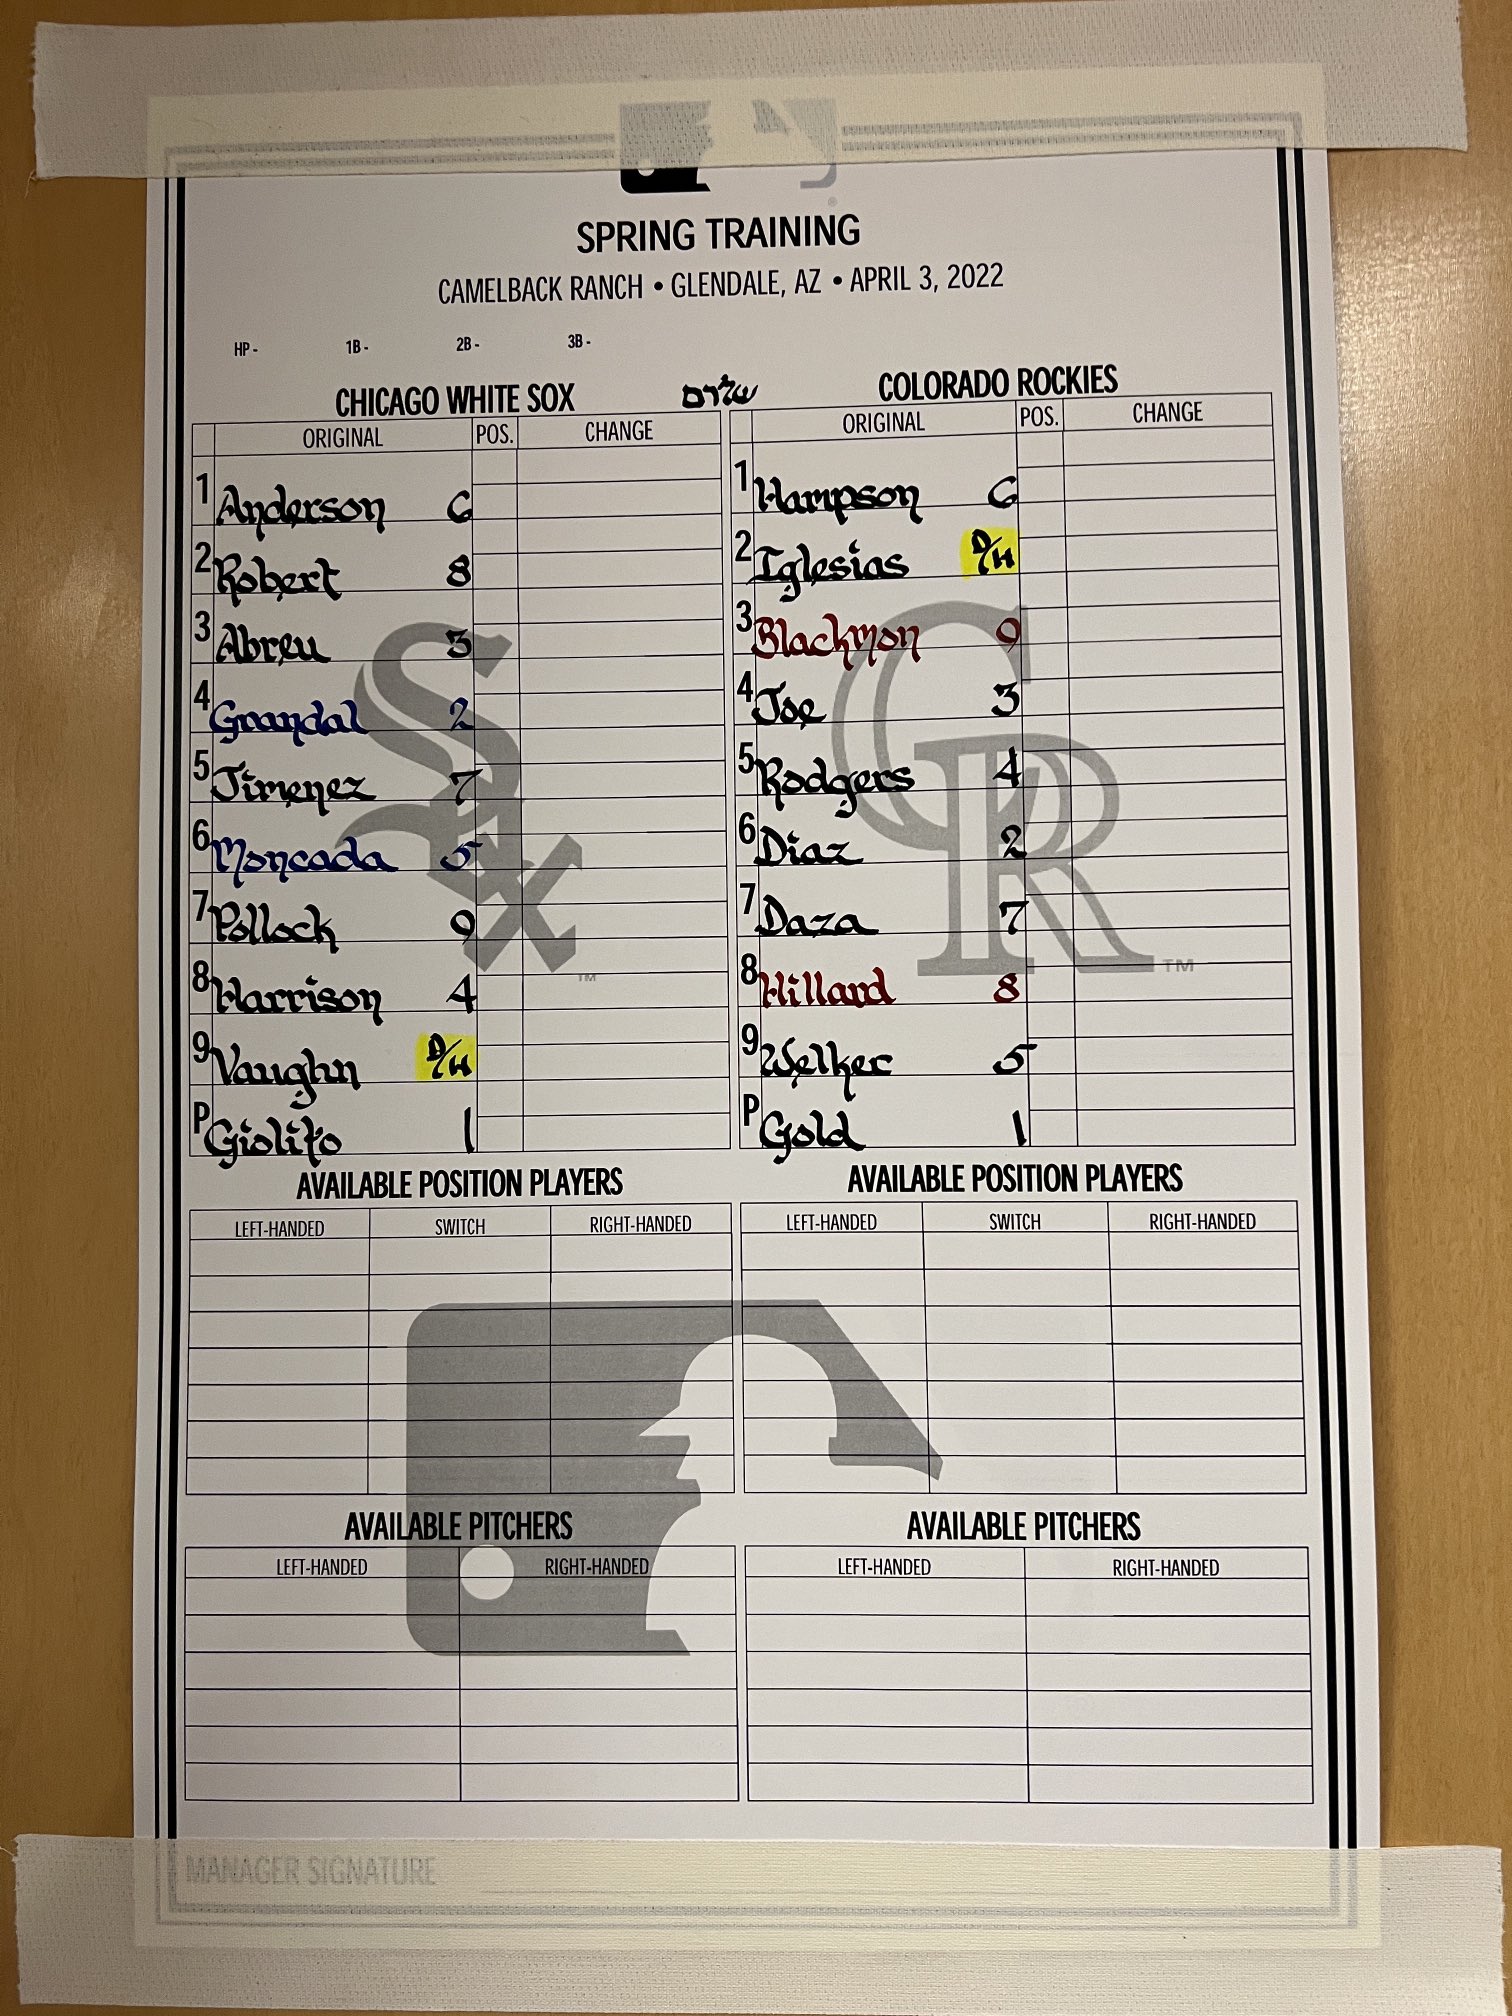 SPRING TRAINING
CAMELBACK RANCH • GLENDALE, AZ • APRIL 3, 2022
HP - 1B - 2B - 3B -
CHICAGO WHITE SOX
ORIGINAL POS. CHANGE
1 Anderson 6
2 Robert 8
3 Abreu 3
4 Grandal 2
5 Jimenez 7
6 Moncada 5
7 Pollock 9
8 Harrison 4
9 Vaughn D/H
P Giolito 1
שלום
COLORADO ROCKIES
ORIGINAL POS. CHANGE
1 Hampson 6
2 Iglesias D/H
3 Blackmon 9
4 Joe 3
5 Rodgers 4
6 Diaz 2
7 Daza 7
8 Hillard 8
9 Welker 5
P Gold 1
Sox
TM
CR
TM
AVAILABLE POSITION PLAYERS
LEFT-HANDED SWITCH RIGHT-HANDED
AVAILABLE POSITION PLAYERS
LEFT-HANDED SWITCH RIGHT-HANDED
AVAILABLE PITCHERS
LEFT-HANDED RIGHT-HANDED
AVAILABLE PITCHERS
LEFT-HANDED RIGHT-HANDED
MANAGER SIGNATURE